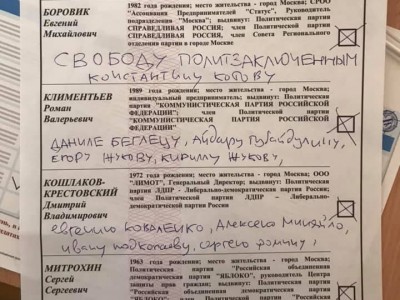 БОРОВИК
Евгений
Михайлович
1982 года рождения; место жительства - город Москва; СРОО
"Ассоциация Предпринимателей "Статус", Руководитель
подразделения "Москва"; выдвинут: Политическая партия
СПРАВЕДЛИВАЯ РОССИЯ; член Политической партии
СПРАВЕДЛИВАЯ РОССИЯ, член Совета Регионального
отделения партии в городе Москве
СВОБОДУ ПОЛИТЗАКЛЮЧЕННЫМ
КОНСТАНТИНУ КОТОВУ
КЛИМЕНТЬЕВ
Роман
Валерьевич
1989 года рождения; место жительства - город Москва;
индивидуальный предприниматель; выдвинут: Политическая
партия "КОММУНИСТИЧЕСКАЯ ПАРТИЯ РОССИЙСКОЙ
ФЕДЕРАЦИИ"; член Политической партии
"КОММУНИСТИЧЕСКАЯ ПАРТИЯ РОССИЙСКОЙ
ФЕДЕРАЦИИ"
ДАНИЛЕ БЕГЛЕЦУ, Айдару Губайдулину,
ЕГОРУ ЖУКОВУ, КИРИЛЛУ ЖУКОВУ,
КОШЛАКОВ-
КРЕСТОВСКИЙ
Дмитрий
Владимирович
1972 года рождения; место жительства - город Москва; ООО
"ЛИМОТ", Генеральный Директор; выдвинут: Политическая
партия ЛДПР - Либерально-демократическая партия России;
член Политической партии ЛДПР - Либерально-
демократической партии России
евгению коваленко, Алексею Миняйло,
ивану подкопаеву, сергею фомину,
МИТРОХИН
Сергей
Сергеевич
1963 года рождения; место жительства - город Москва;
Политическая партия "Российская объединенная
демократическая партия "ЯБЛОКО", руководитель Центра
защиты прав граждан; выдвинут: Политическая партия
"Российская объединенная демократическая партия